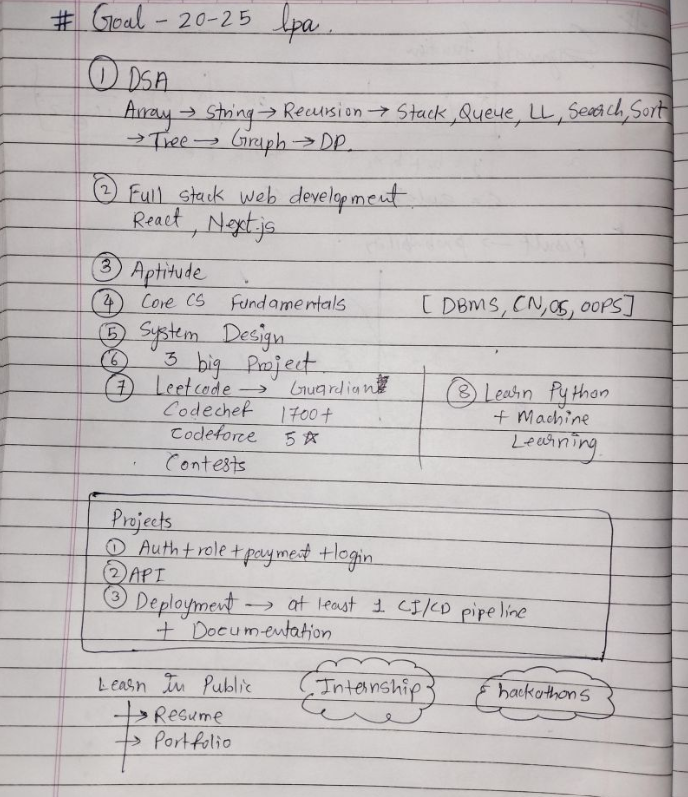 # Goal - 20-25 lpa.
① DSA
Array → String → Recursion → Stack, Queue, LL, Search, Sort
→ Tree → Graph → DP.
② Full stack web development
React, Next.js
③ Aptitude
④ Core CS Fundamentals [DBMS, CN, OS, OOPS]
⑤ System Design
⑥ 3 big Project
⑦ Leetcode → Guardian
Codechef 1700+
Codeforce 5☆
Contests
⑧ Learn Python
+ Machine
Learning
Projects
① Auth+role+payment+login
② API
③ Deployment → at least 1 CI/CD pipeline
+ Documentation
Learn In Public
→ Resume
→ Portfolio
Internship
hackathons